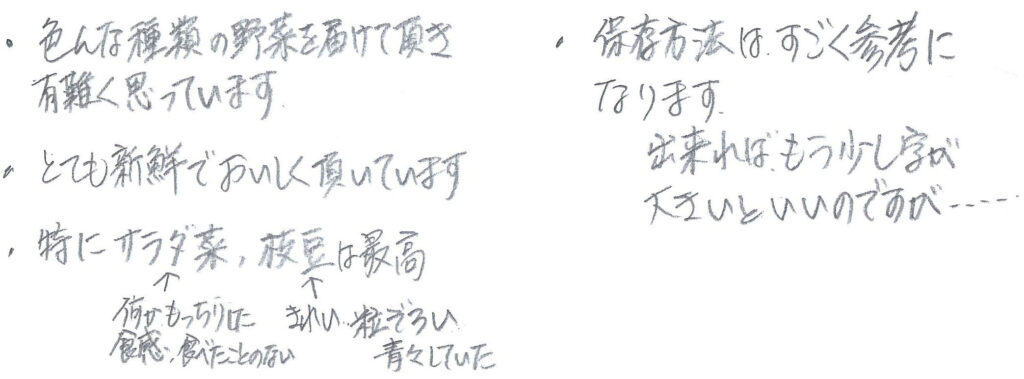 ・色んな種類の野菜を届けて頂き
有難く思っています。
・とても新鮮でおいしく頂いています
・特にサラダ菜、枝豆は最高
↑
何かもっちりした
食感、食べたことのない
↑
きれい、粒ぞろい
青々していた
・保存方法は、すごく参考に
なります。
出来れば、もう少し字が
大きいといいのですが……